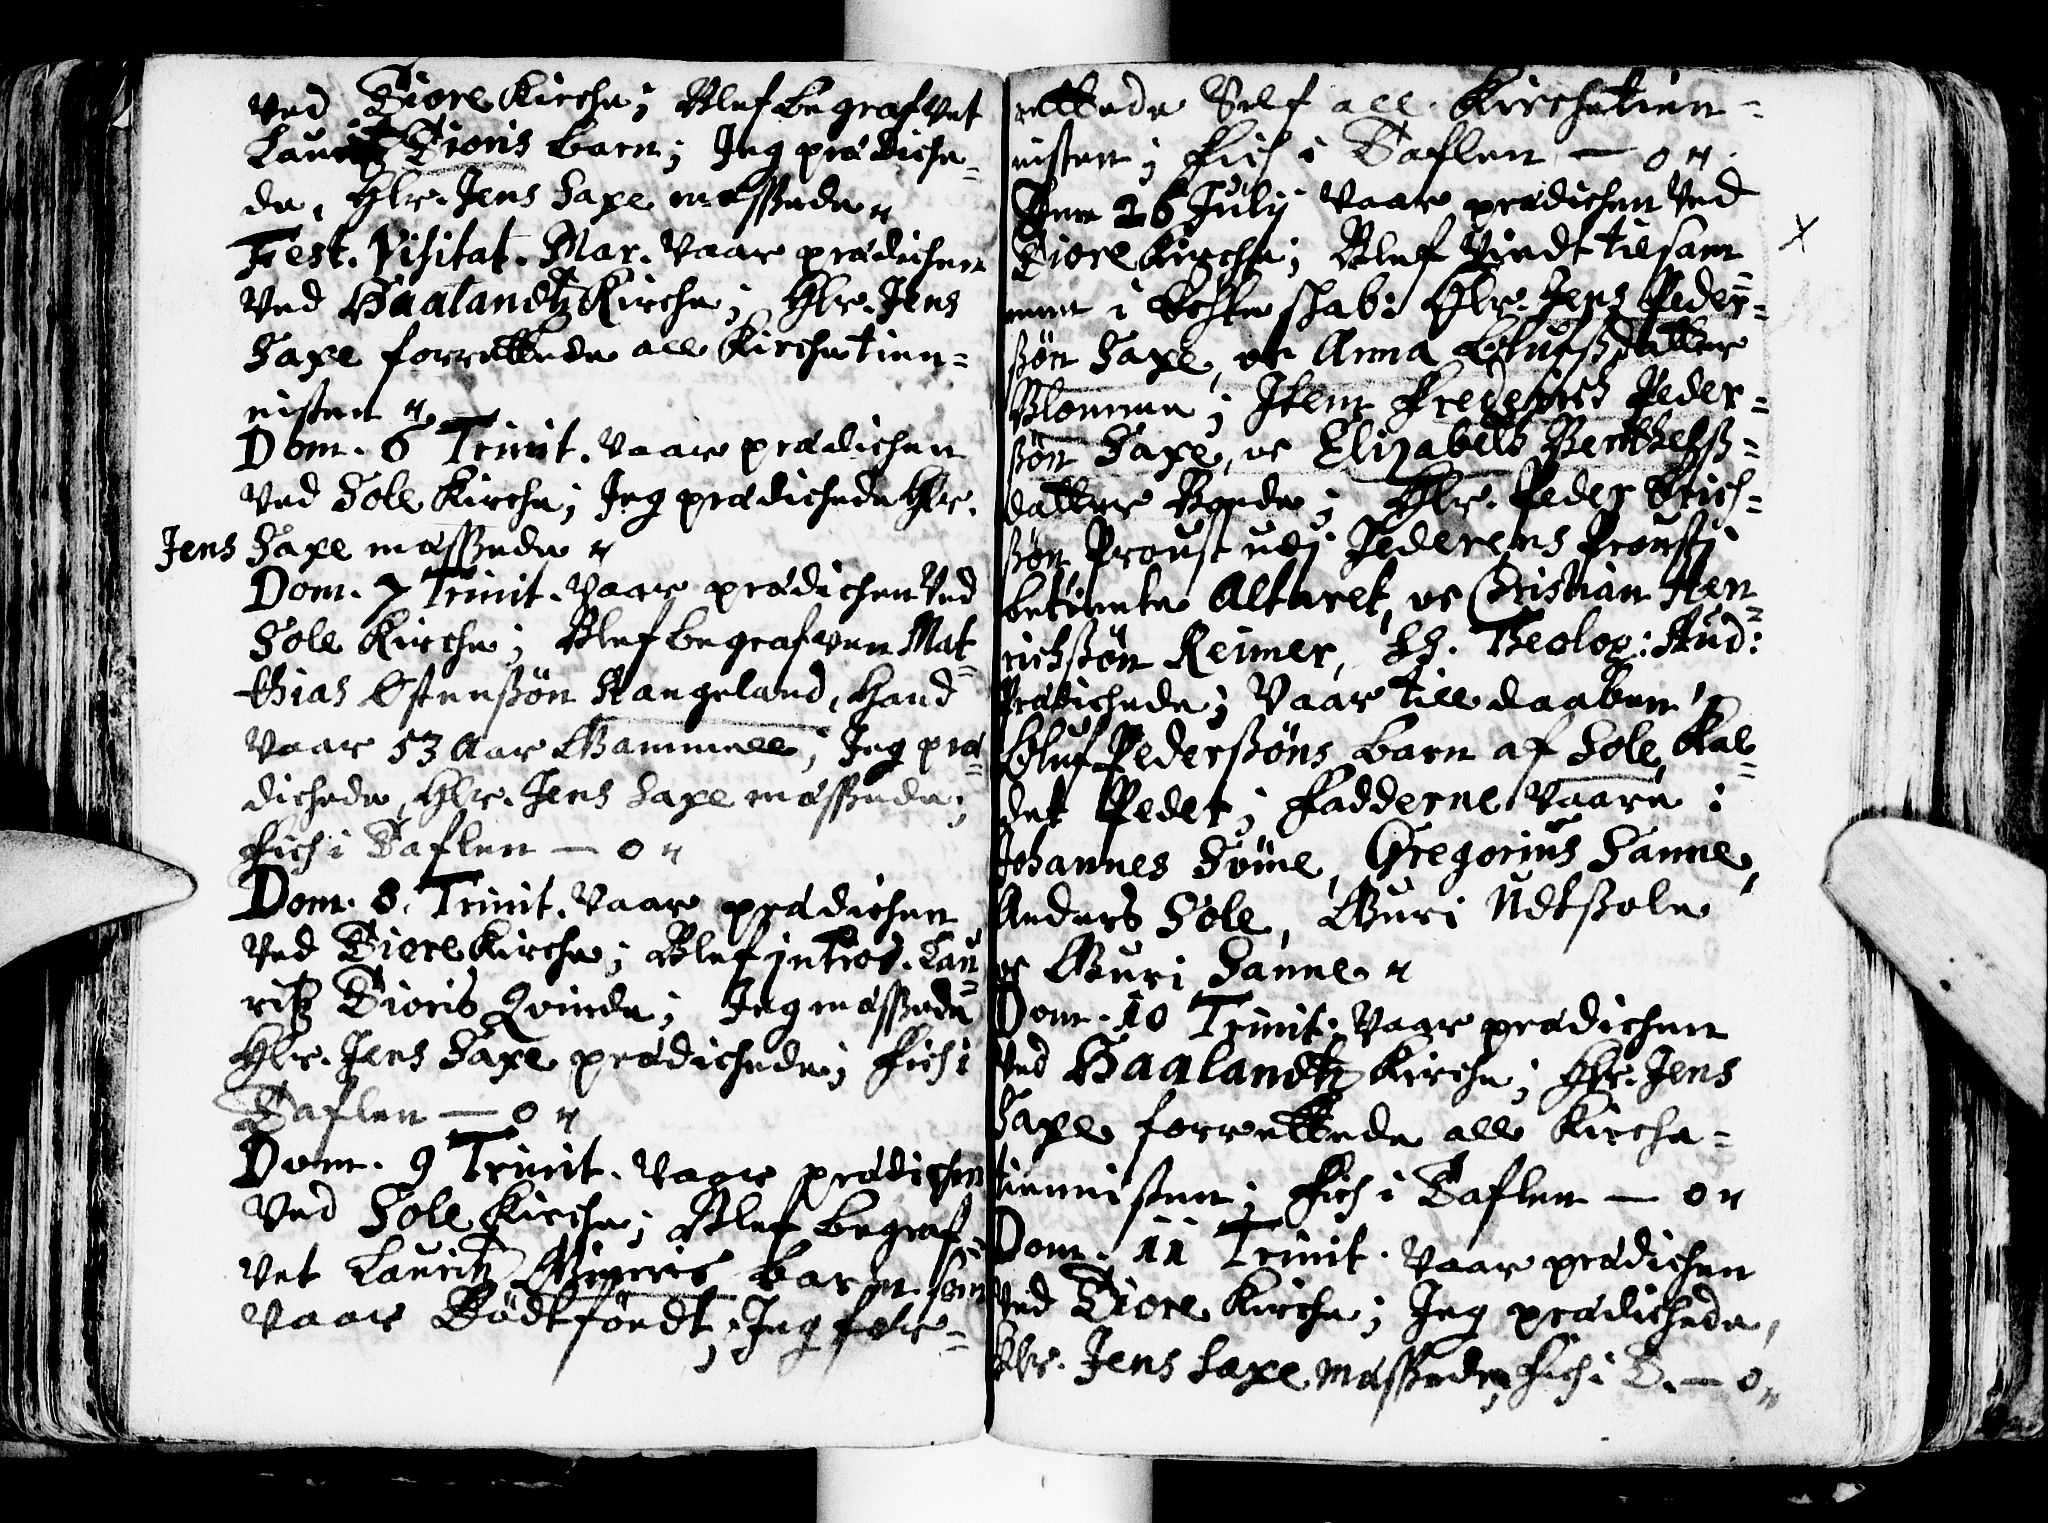 Ved Tiore Kirche; Blef begrafvet
Lauritz Tioris barn; Jeg prædiche=
de, Hlr. Jens Saxe mæssede
Fest. Visitat. Mar. Vaar prædichen
Ved Haalandtz Kirche; Hlr. Jens
Saxe forrettede all Kirchetien=
nisten
Dom. 6 Trinit. Vaar prædichen
Ved Sole Kirche; Jeg prædichede Hlr.
Jens Saxe mæssede
Dom. 7 Trinit. Vaar prædichen Ved
Sole Kirche; Blef begrafven Mat=
thias Ostenssøn Stangeland, hand
Vaar 53 Aar Gammell; Jeg præ=
dichede, Hlr. Jens Saxe mæssede;
Fich i Taflen — 0
Dom. 8. Trinit. Vaar prædichen
Ved Tiore Kirche; Blef introd. Lau=
ritz Tioris Qvinde; Jeg mæssede
Hlr. Jens Saxe prædichede; Fich i
Taflen — 0
Dom. 9 Trinit. Vaar prædichen
Ved Sole Kirche; Blef begraf=
vet Lauritz barn som
Vaar Dødtføedt; Jeg for=
rettede Self all Kirchetien=
nisten; Fich i Taflen — 0
Den 26 Julij Vaar prædichen Ved
Tiore Kirche; Blef Viedt tilsam
men i Echteskab: Hlr. Jens Peder=
ssøn Saxe, oc Anna Olufsdatter
Blomme; Item Frederich Peder=
ssøn Saxe, oc Elizabeth Berthelss=
datter Bonde; Hlr. Peder Erich=
ssøn Proust udj Jederens Proustj
betiente Altaret, oc Christian Hen=
richssøn Reimer, SS. Theolog: Stud:
Prædichede; Vaar till daaben
Oluf Pederssøns barn af Sole, Kal=
det Peder; Fadderne Vaare:
Johannes Sømе, Gregorius Sanne,
Anders Sole, Guri Udtssole
oc Guri Sanne.
Dom. 10 Trinit; Vaar prædichen
Ved Haalandtz Kirche; Hlr. Jens
Saxe forrettede all Kirche=
tiennisten; Fich i Taflen — 0
Dom. 11 Trinit. Vaar prædichen
Ved Tiore Kirche; Jeg prædichede,
Hlr. Jens Saxe mæssede; Fich i T. — 0